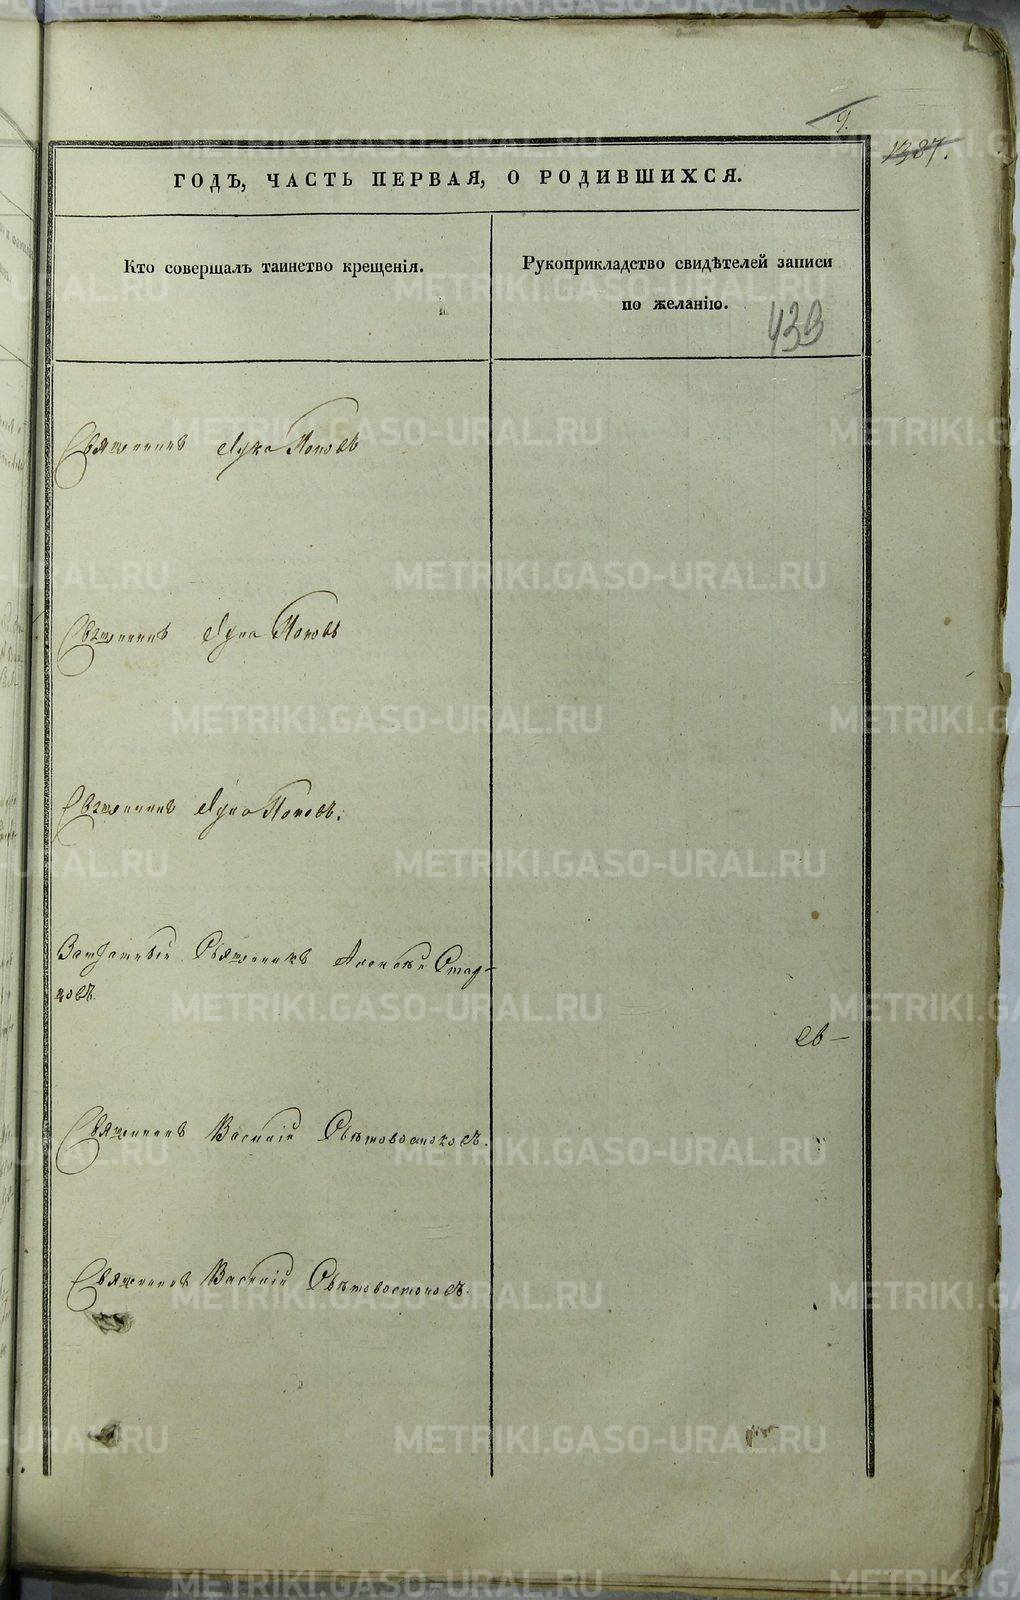 9.
1387.
ГОДЪ, ЧАСТЬ ПЕРВАЯ, О РОДИВШИХСЯ.
Кто совершалъ таинство крещенія.
Рукоприкладство свидѣтелей записи
по желанію.
433
Священникъ Лука Поповъ
Священникъ Лука Поповъ
Священникъ Лука Поповъ.
Священникъ Алексѣй Стар-
ковъ.
Священникъ Василій Свѣтовостоковъ.
Священникъ Василій Свѣтовостоковъ.
METRIKI.GASO-URAL.RU